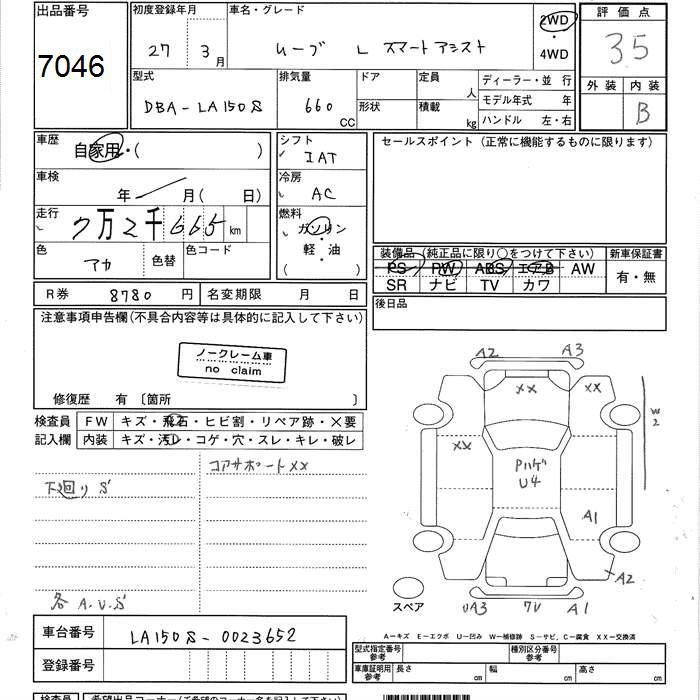 出品番号 初度登録年月 車名・グレード 2WD 評価点
7046 27年 3月 ムーブ L スマートアシスト ・ 35
4WD
型式 排気量 ドア 定員 人 ディーラー・並行 外装 内装
DBA-LA150S 660 CC 形状 積載 kg モデル年式 年 B
ハンドル 左・右
車歴 自家用・( ) シフト IAT セールスポイント (正常に機能するものに限ります)
車検 年 月( 日) 冷房 AC
走行 7万2千665km 燃料 ガソリン
色 アカ 色替 色コード 軽・油
( )
装備品 (純正品に限り○をつけて下さい) 新車保証書
PS PW ABS エアB AW 有・無
SR ナビ TV カワ
R券 8780円 名変期限 月 日 後日品
注意事項申告欄(不具合内容等は具体的に記入して下さい)
ノークレーム車
no claim
修復歴 有 〔箇所 〕
検査員 FW キズ・飛石・ヒビ割・リペア跡・×要
記入欄 内装 キズ・汚レ・コゲ・穴・スレ・キレ・破レ
コアサポートXX
下廻りS
各A.U.S
A2 A3
XX XX
W2
XX
Pハゲ
U4
A1
A2
スペア UA3 7V A1
車台番号 LA150S-0023652
登録番号
A－キズ E－エクボ U－凹み W－補修跡 S－サビ、C－腐食 XX－交換済
型式指定番号 参考 種別区分番号 参考
車庫証明用 参考 長さ cm 幅 cm 高さ cm
検査員 希望出品コーナー(ご希望のコーナー名を記入下さい)